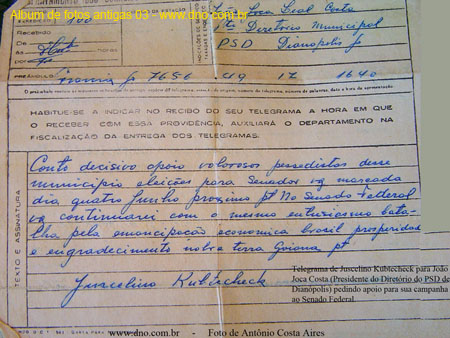 Album de fotos antigas 03 - www.dno.com.br
Leal Costa
Recebido
Diretorio Municipal
De
PSD Dianopolis
PREÂMBULO
7656 49 17 1640
HABITUE-SE A INDICAR NO RECIBO DO SEU TELEGRAMA A HORA EM QUE
O RECEBER COM ESSA PROVIDÊNCIA, AUXILIARÁ O DEPARTAMENTO NA
FISCALIZAÇÃO DA ENTREGA DOS TELEGRAMAS.
TEXTO E ASSINATURA
Conto decisivo apoio valorosos pessedistas desse
municipio eleições para Senador vg marcada
dia quatro junho proximo pt No Senado Federal
vg continuarei com o mesmo entusiasmo bata-
lha pela emancipação economica brasil prosperidade
e engradecimento nobre terra Goiana pt
Juscelino Kubtcheck
Telegrama de Juscelino Kubtecheck para João
Joca Costa (Presidente do Diretório do PSD de
Dianópolis) pedindo apoio para sua campanha
ao Senado Federal.
www.dno.com.br - Foto de Antônio Costa Aires